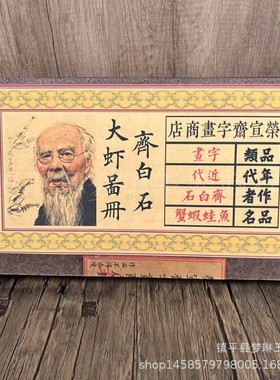 榮宣齋字畫商店
齊白石
大虾啚冊
品類 字畫
年代 近代
作者 齊白石
品名 魚蛙蝦蟹
镇平县梦琳玉
1458579798005.168